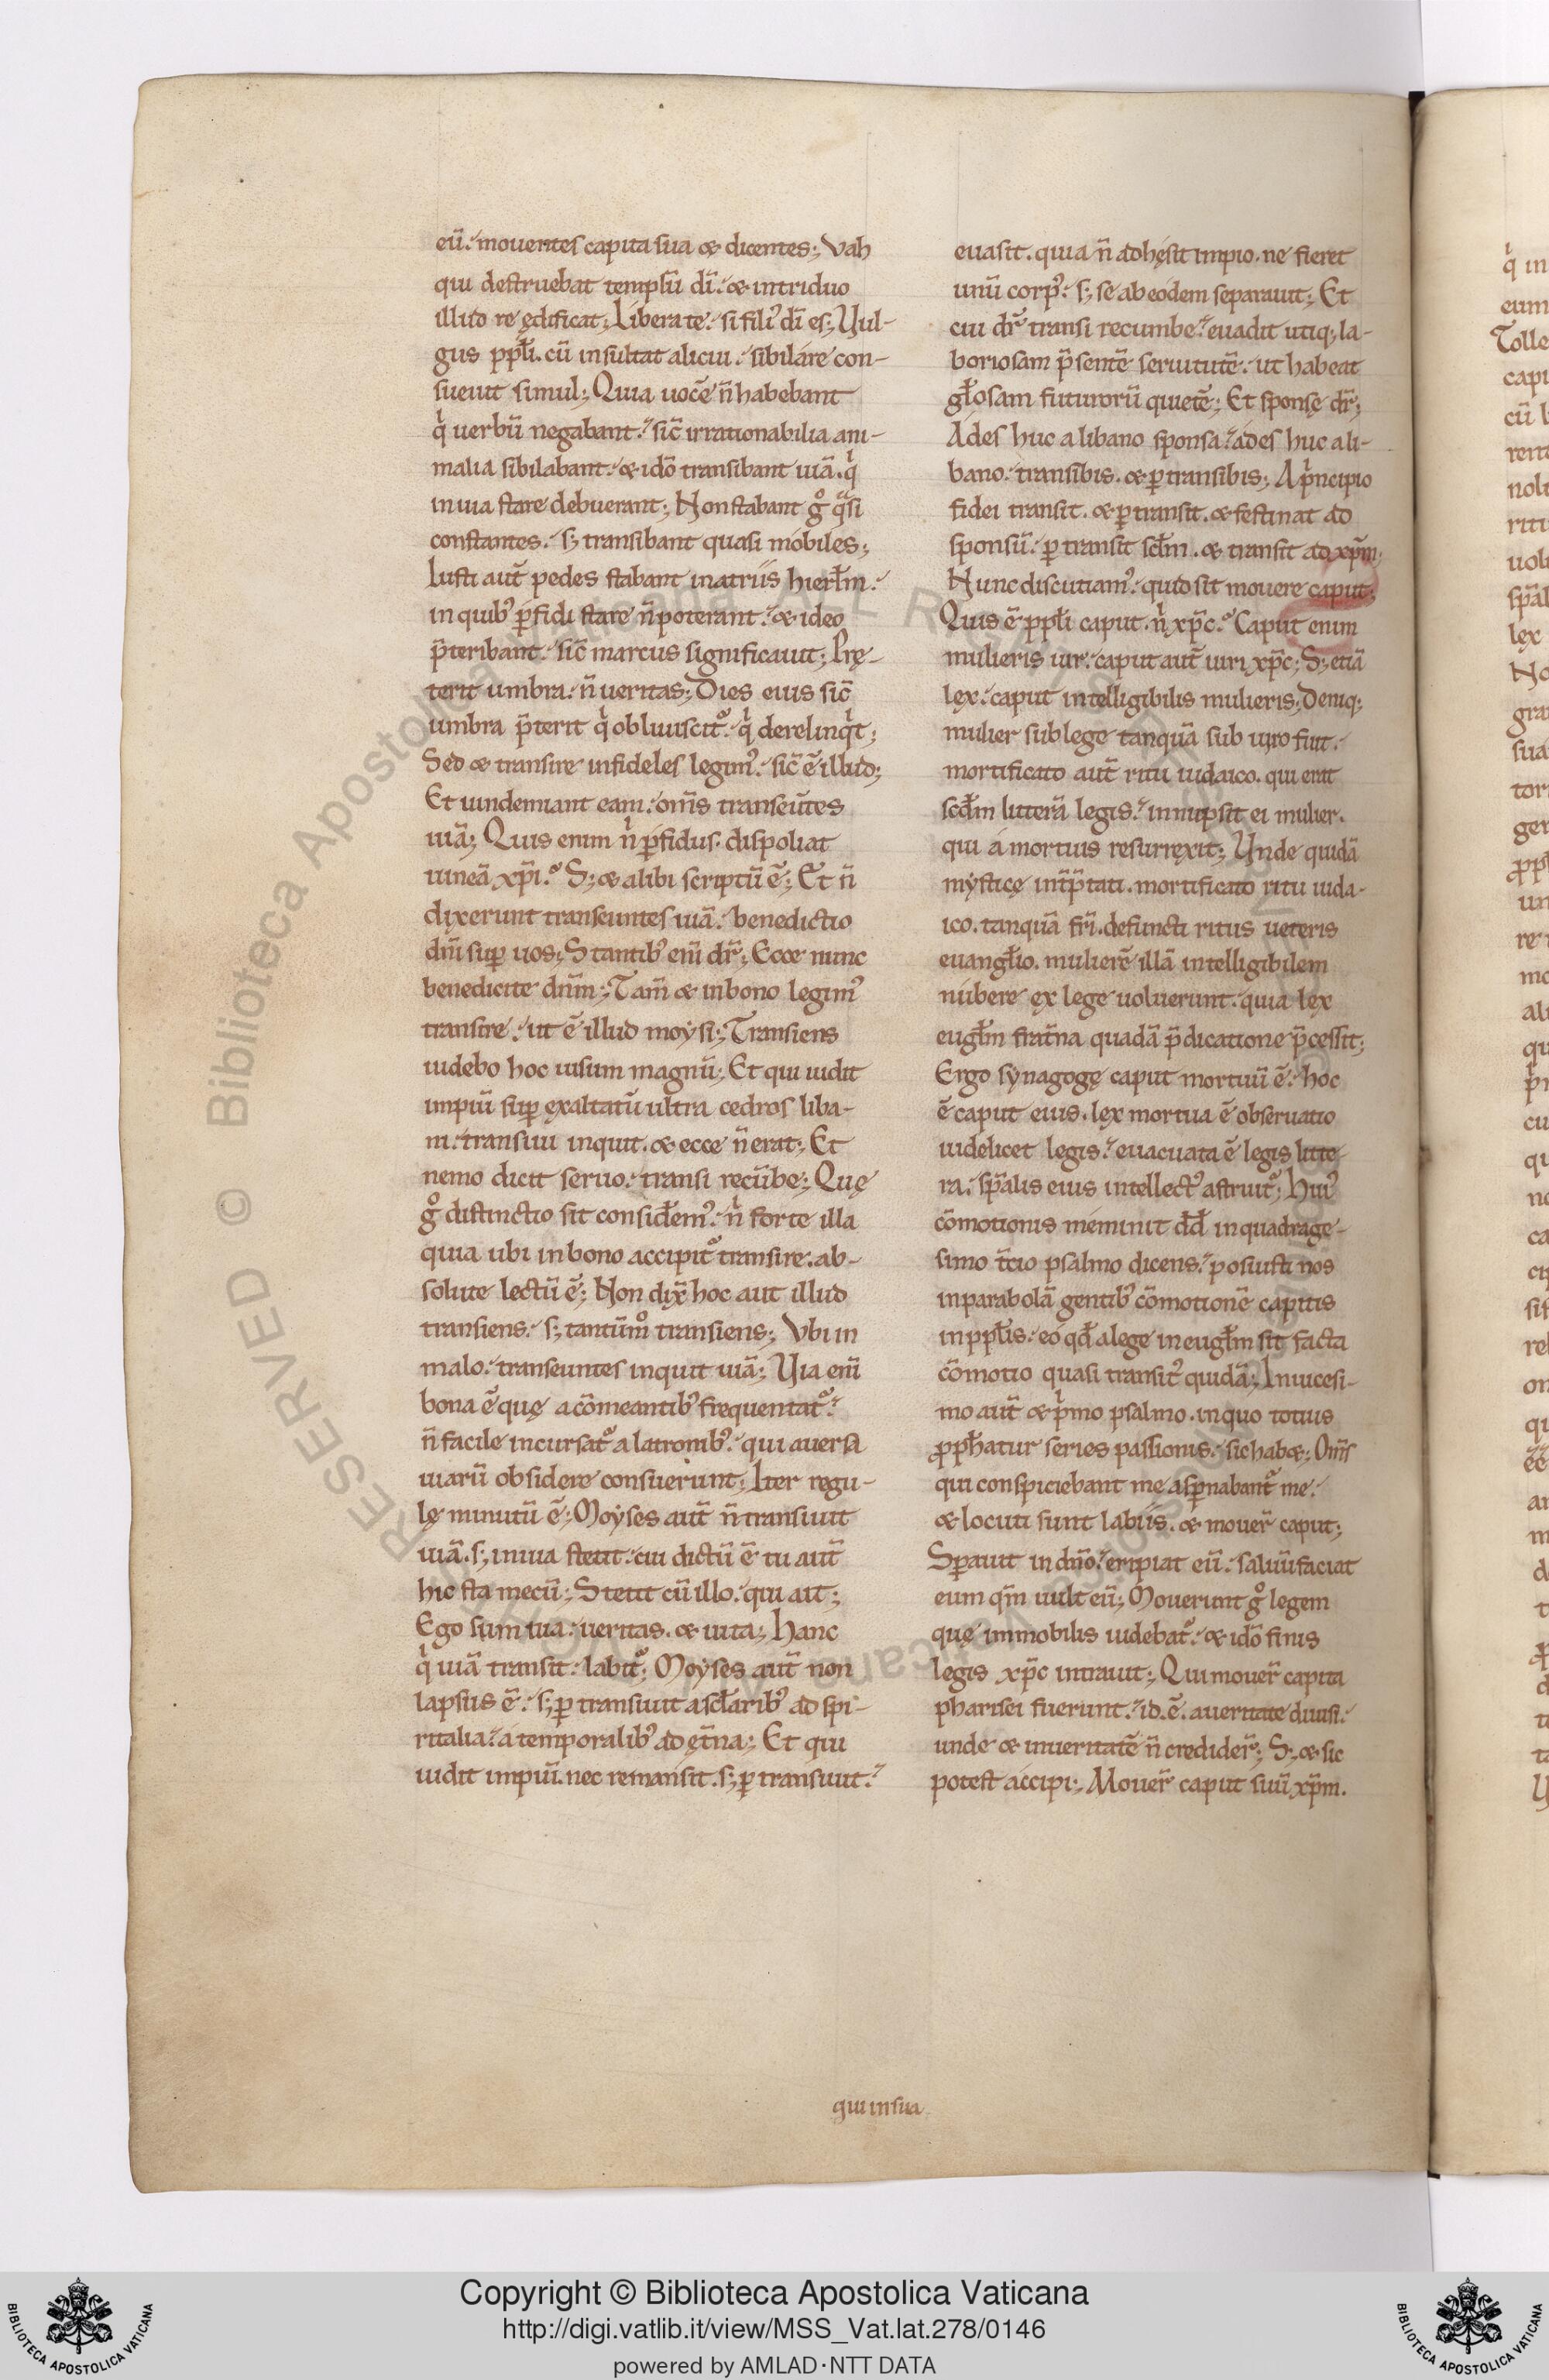 eū. mouentes capita sua & dicentes; Vah
qui destruebat templū dī. & intriduo
illud reędificat; Libera te. si filiꝰ dī es; Uul-
gus pp̄li. cū insultat alicui. sibilare con-
sueuit simul; Quia uocē n̄ habebant
qͥ uerbū negabant. sic̄ irrationabilia ani-
malia sibilabant. & idō transibant uiā. qͥ
inuia stare debuerant; Non stabant gͦ qͣsi
constantes. s; transibant quasi mobiles;
Iusti aut̄ pedes stabant inatriis hierłm.
in quibꝰ ꝑfidi stare n̄ poterant. & ideo
p̄teribant. sic̄ marcus significauit; Prę-
terit umbra. n̄ ueritas; Dies eius sic̄
umbra p̄terit qͥ obliuiscit᷑. qͥ derelinqͥt;
Sed & transire infideles legimꝰ. sic̄ ē illud;
Et uindemiant eam. om̄s transeūtes
uiā; Quis enim nͥ ꝑfidus. dispoliat
uineā xp̄i. S; & alibi scriptū ē; Et n̄
dixerunt transeuntes uiā. benedictio
dn̄i suꝑ uos; Stantibꝰ eni̅ dr̄; Ecce nunc
benedicite dn̄m; Tam̄ & inbono legimꝰ
transire. ut ē illud moysi; Transiens
uidebo hoc uisum magnū; Et qui uidit
impiū suꝑ exaltatū ultra cedros liba-
ni. transiui inquit. & ecce n̄ erat; Et
nemo dicit seruo. transi recūbe; Quę
gͦ distinctio sit considem̄ꝰ. nͥ forte illa
quia ubi inbono accipit᷑ transire. ab-
solute lectū ē; Non dix̄ hoc aut illud
transiens. s; tantūmͦ transiens; Vbi in
malo. transeuntes inquit uiā; Uia eni̅
bona ē quę acōmeantibꝰ frequentat᷑.
n̄ facile incursat᷑ a latronibꝰ. qui auersa
uiarū obsidere consuerunt; Iter regu-
lę minutū ē; Moyses aut̄ n̄ transiuit
uiā. s; inuia stetit. cui dictū ē tu aut̄
hic sta mecū; Stetit cū illo. qui ait;
Ego sum uia. ueritas. & uita; Hanc
qͥ uiā transit. labit᷑; Moyses aut̄ non
lapsus ē. s; ꝑtransiuit a scłaribꝰ ad spi-
ritalia. a temporalibꝰ ad ęt̄na; Et qui
uidit impiū. nec remansit. s; ꝑtransiuit.
euasit. quia n̄ adhęsit impio. ne fieret
unū corpꝰ. s; se ab eodem separauit; Et
cui dr̄ transi recumbe. euadit utiq; la-
boriosam p̄sentē seruitutē. ut habeat
głosam futurorū quietē; Et sponsę dr̄;
Ades huc a libano sponsa. ades huc a li-
bano. transibis. & ꝑtransibis; Apͥncipio
fidei transit. & ꝑtransit. & festinat ad
sponsū. ꝑtransit scłm. & transit ad xp̄m;
Nunc discutiamꝰ. quid sit mouere caput;
Quis ē pp̄li caput. nͥ xp̄c. Caput enim
mulieris uir. caput aut̄ uiri xp̄c; S; etiā
lex. caput intelligibilis mulieris; Deniq;
mulier sub lege tanquā sub uiro fuit.
mortificato aut̄ ritu iudaico. qui erat
scd̄m litterā legis. innupsit ei mulier.
qui a mortuis resurrexit; Unde quidā
mysticę int̄p̄tati. mortificato ritu iuda-
ico. tanquā fr̄i. defuncti ritus ueteris
euangłio. mulierē illā intelligibilem
nubere ex lege uoluerunt. quia lex
eugłm frat̄na quadā p̄dicatione p̄cessit;
Ergo synagogę caput mortuū ē. hoc
ē caput eius. lex mortua ē obseruatio
uidelicet legis. euacuata ē legis litte-
ra. sp̄alis eius intellectꝰ astruit᷑; Huiꝰ
cōmotionis meminit dd̄ in quadrage-
simo t̄cio psalmo dicens. posuisti nos
inparabolā gentibꝰ cōmotionē capitis
inpp̄lis. eo qd̄ a lege in eugłm sit facta
cōmotio quasi transitꝰ quidā; Inuicesi-
mo aut̄ & pͥmo psalmo. in quo totius
ꝓpħatur series passionis. sic hab&; Om̄s
qui conspiciebant me aspꝑnabant᷑ me.
& locuti sunt labiis. & mouer̄ caput;
Sꝑauit in dn̄o. eripiat eū. saluū faciat
eum qm̄ uult eū; Mouerunt gͦ legem
quę immobilis uidebat᷑. & idō finis
legis xp̄c intrauit; Qui mouer̄ capita
pharisei fuerunt. id. ē. aueritate diuisi.
unde & inueritatē n̄ credider̄; S; & sic
potest accipi; Mouer̄ caput suū xp̄m.
qui insua
Copyright © Biblioteca Apostolica Vaticana
http://digi.vatlib.it/view/MSS_Vat.lat.278/0146
powered by AMLAD·NTT DATA